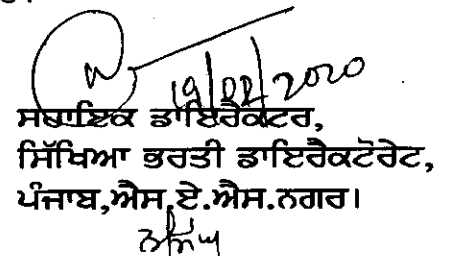 19/02/2020
ਸਹਾਇਕ ਡਾਇਰੈਕਟਰ,
ਸਿੱਖਿਆ ਭਰਤੀ ਡਾਇਰੈਕਟੋਰੇਟ,
ਪੰਜਾਬ,ਐਸ.ਏ.ਐਸ.ਨਗਰ।